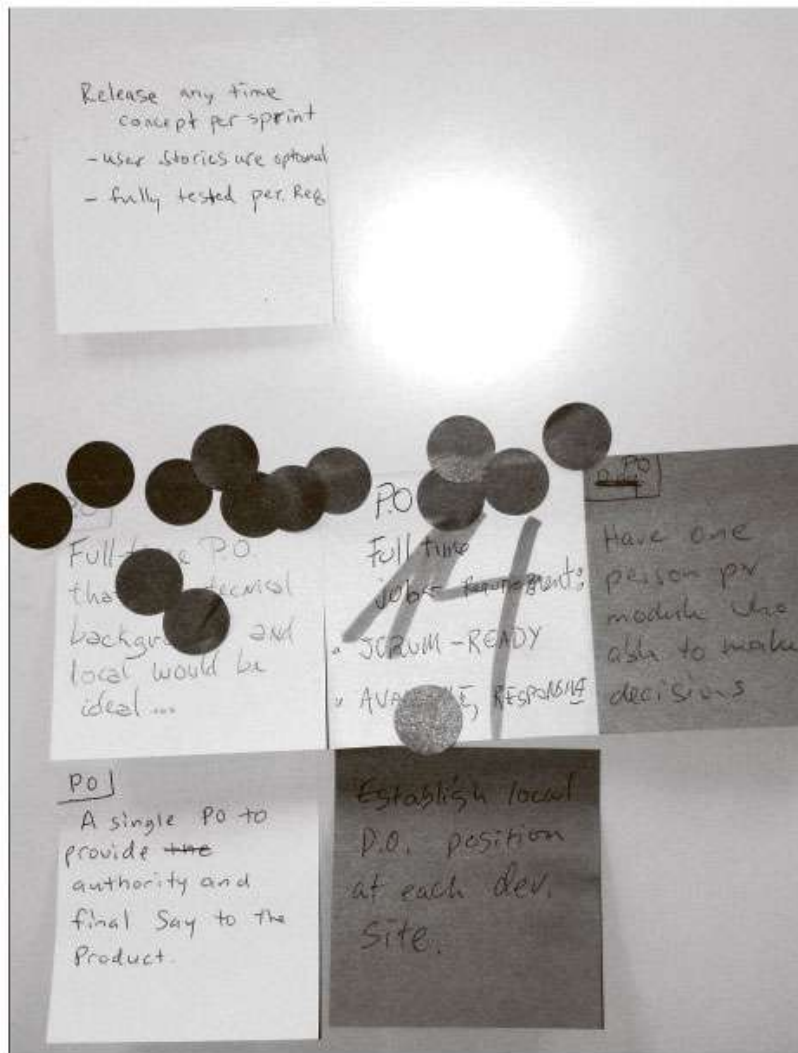 Release any time
concept per sprint
- user stories are optional
- fully tested per. Req
Full-time P.O.
background and
local would be
ideal ...
PO
Full time
job
• SCRUM-READY
• AVAILABLE, RESPONSIVE
14
PO
Have one
person pr
module who
able to make
decisions
PO
A single PO to
provide the
authority and
final say to the
Product.
Establish local
P.O. position
at each dev.
site.